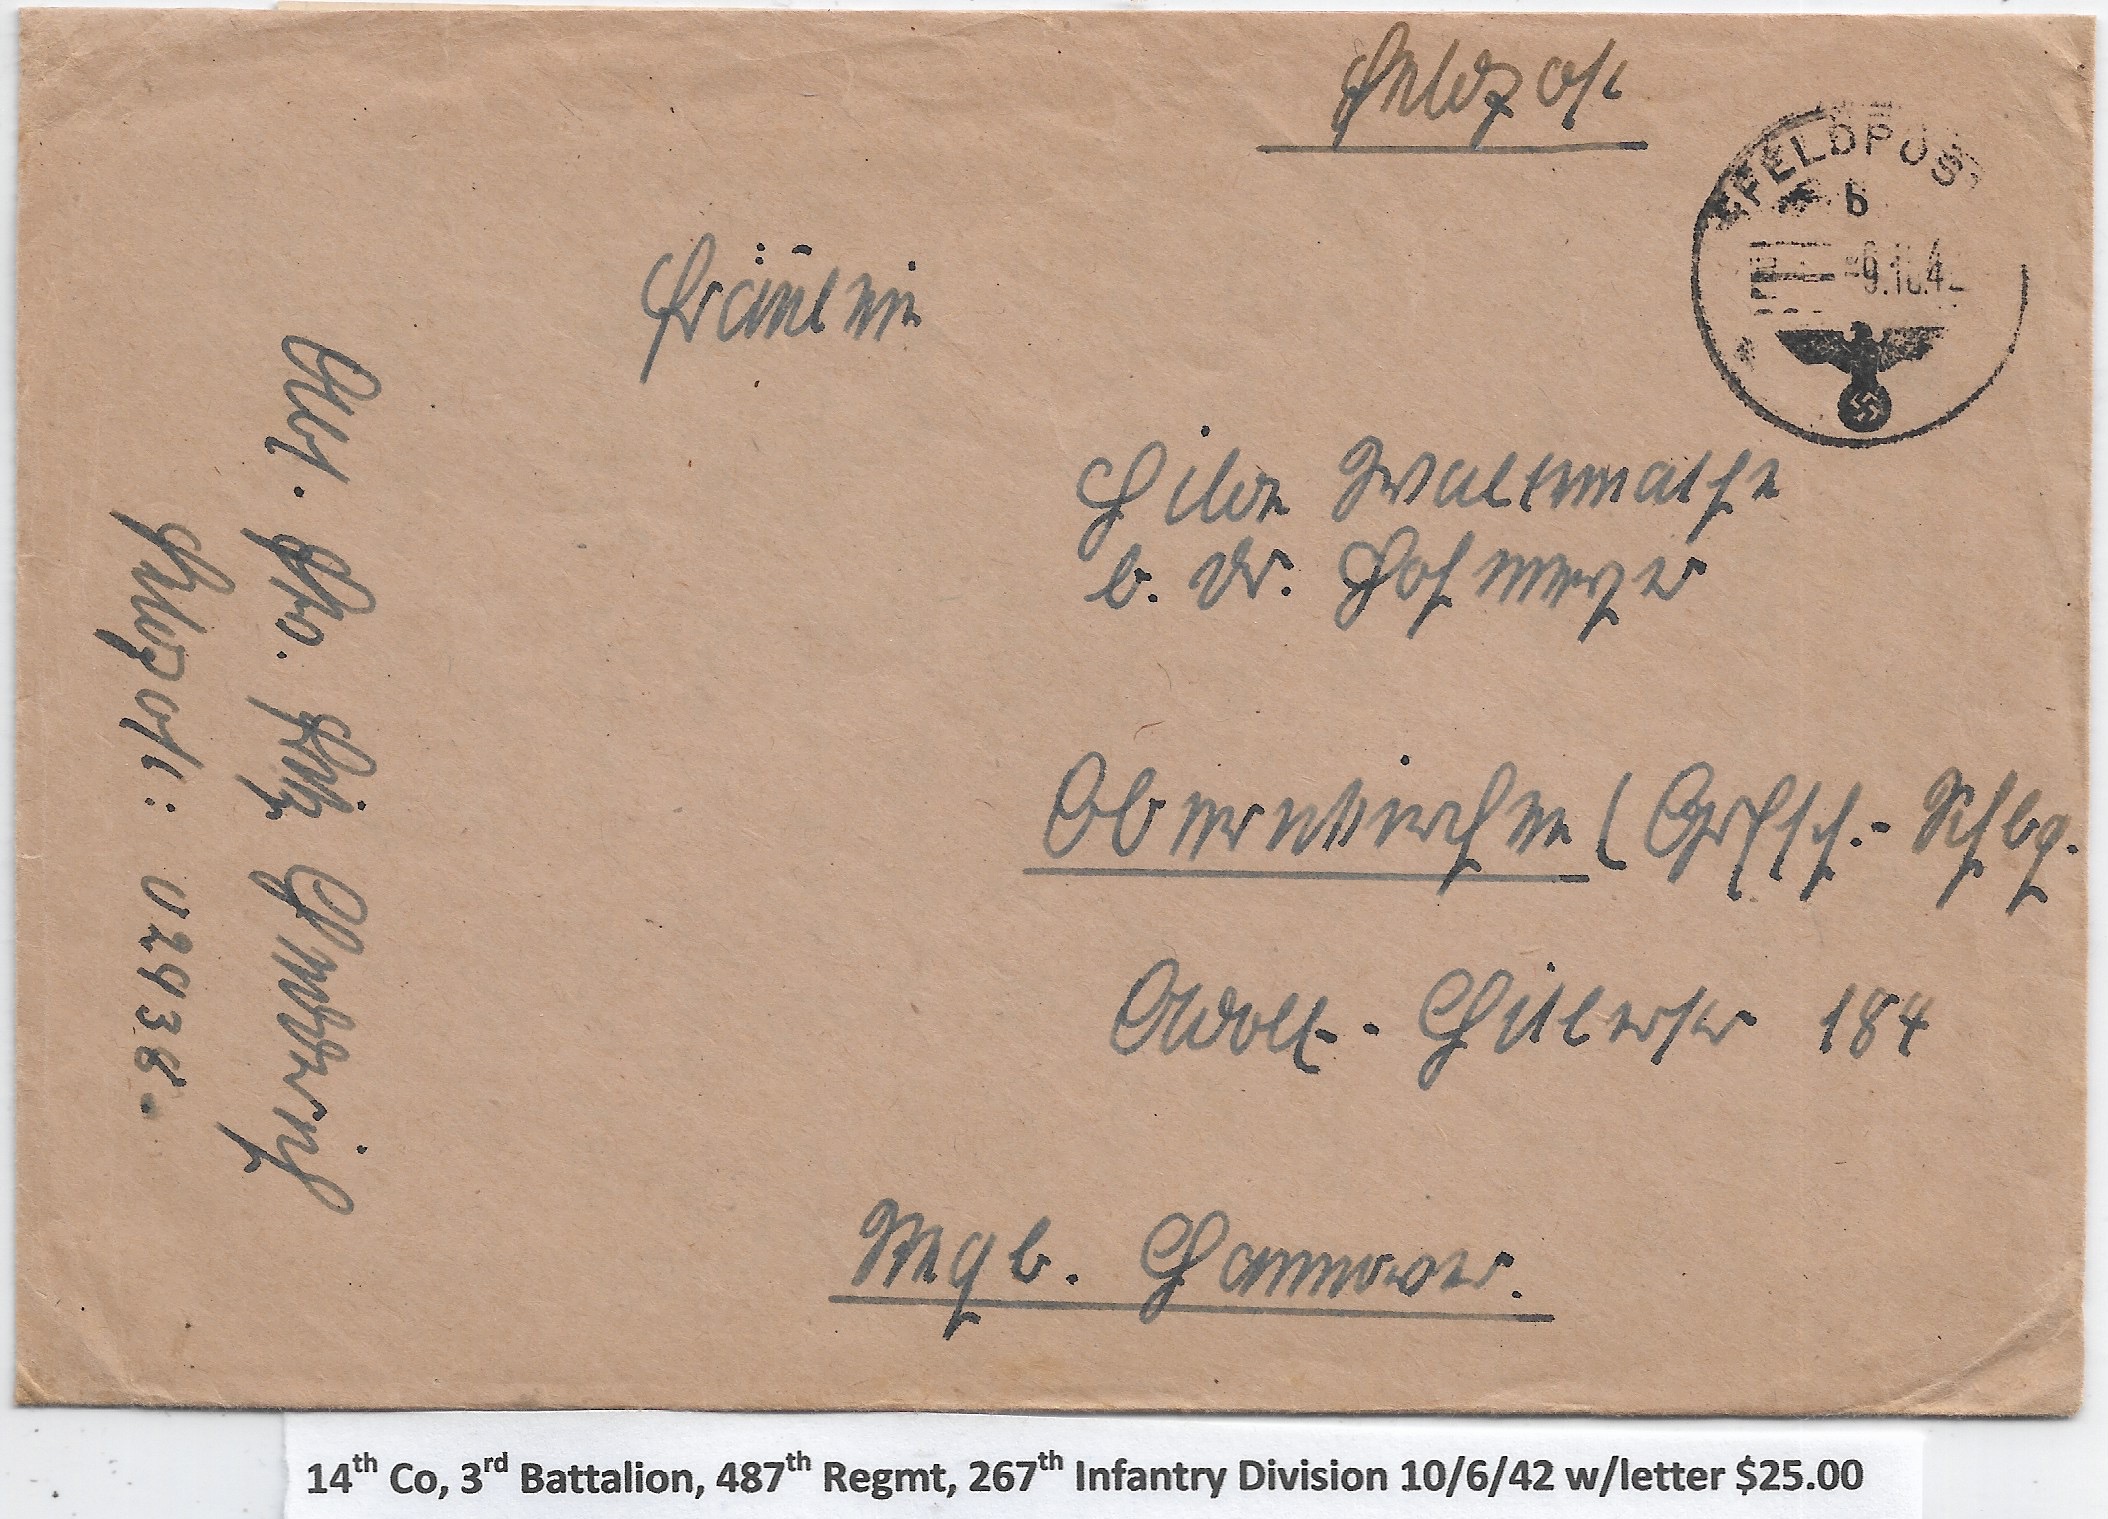 Feldpost
FELDPOST
b
9.10.42
Fräulein
Hilde Waltemathe
b. Dr. Hofmeyer
Obernkirchen (Grfsch.-Schbg.
Adolf-Hitlerstr 184
Mgb. Hannover.
Abs. Gfr. Fritz
Feldpost: 02936.
14th Co, 3rd Battalion, 487th Regmt, 267th Infantry Division 10/6/42 w/letter $25.00